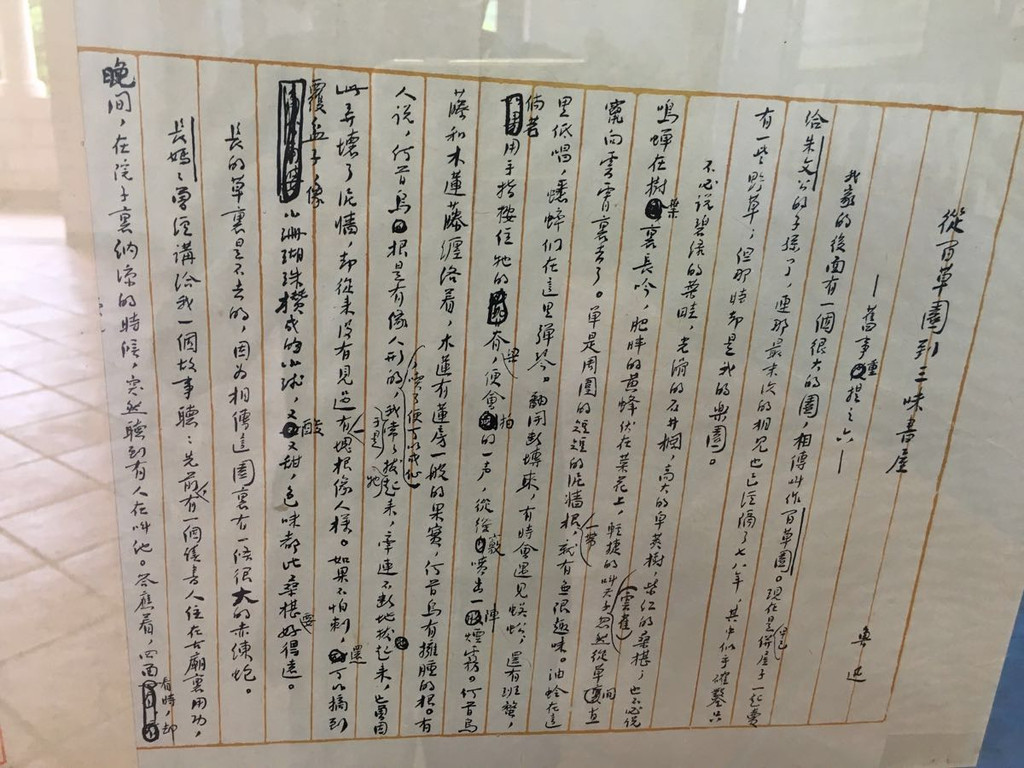 從百草園到三味書屋
——舊事重提之六——
魯迅
我家的後面有一個很大的園,相傳叫作百草園。現在是早已併屋子一起賣
給朱文公的子孫了,連那最末次的相見也已經隔了七八年,其中似乎確鑿只
有一些野草;但那時却是我的樂園。
不必說碧綠的菜畦,光滑的石井欄,高大的皁莢樹,紫紅的桑椹;也不必說
鳴蟬在樹葉裏長吟,肥胖的黃蜂伏在菜花上,輕捷的叫天子(雲雀)忽然從草間直
竄向雲霄裏去了。單是周圍的短短的泥牆根一帶,就有無限趣味。油蛉在這
里低唱,蟋蟀們在這里彈琴。翻開斷塼來,有時會遇見蜈蚣;還有斑蝥,倘若
用手指按住牠的脊梁,便會拍的一声,從後竅噴出一陣煙霧。何首烏
藤和木蓮藤纏洛着,木蓮有蓮房一般的果實,何首烏有擁腫的根。有
人說,何首烏根是有像人形的,喫了便可以成仙,我於是常常拔牠起來,牽連不斷地拔起來,也曾因
此弄壞了泥牆,却從來沒有見過有一塊根像人樣。如果不怕刺,還可以摘到
覆盆子,像小珊瑚珠攢成的小球,又酸又甜,色味都比桑椹要好得遠。
長的草裏是不去的,因为相傳這園裏有一條很大的赤練蛇。
長媽媽曾經講給我一個故事聽:先前,有一個讀書人住在古廟裏用功,
晚間,在院子裏納涼的時候,突然聽到有人在叫他。答應着,四面看時,却